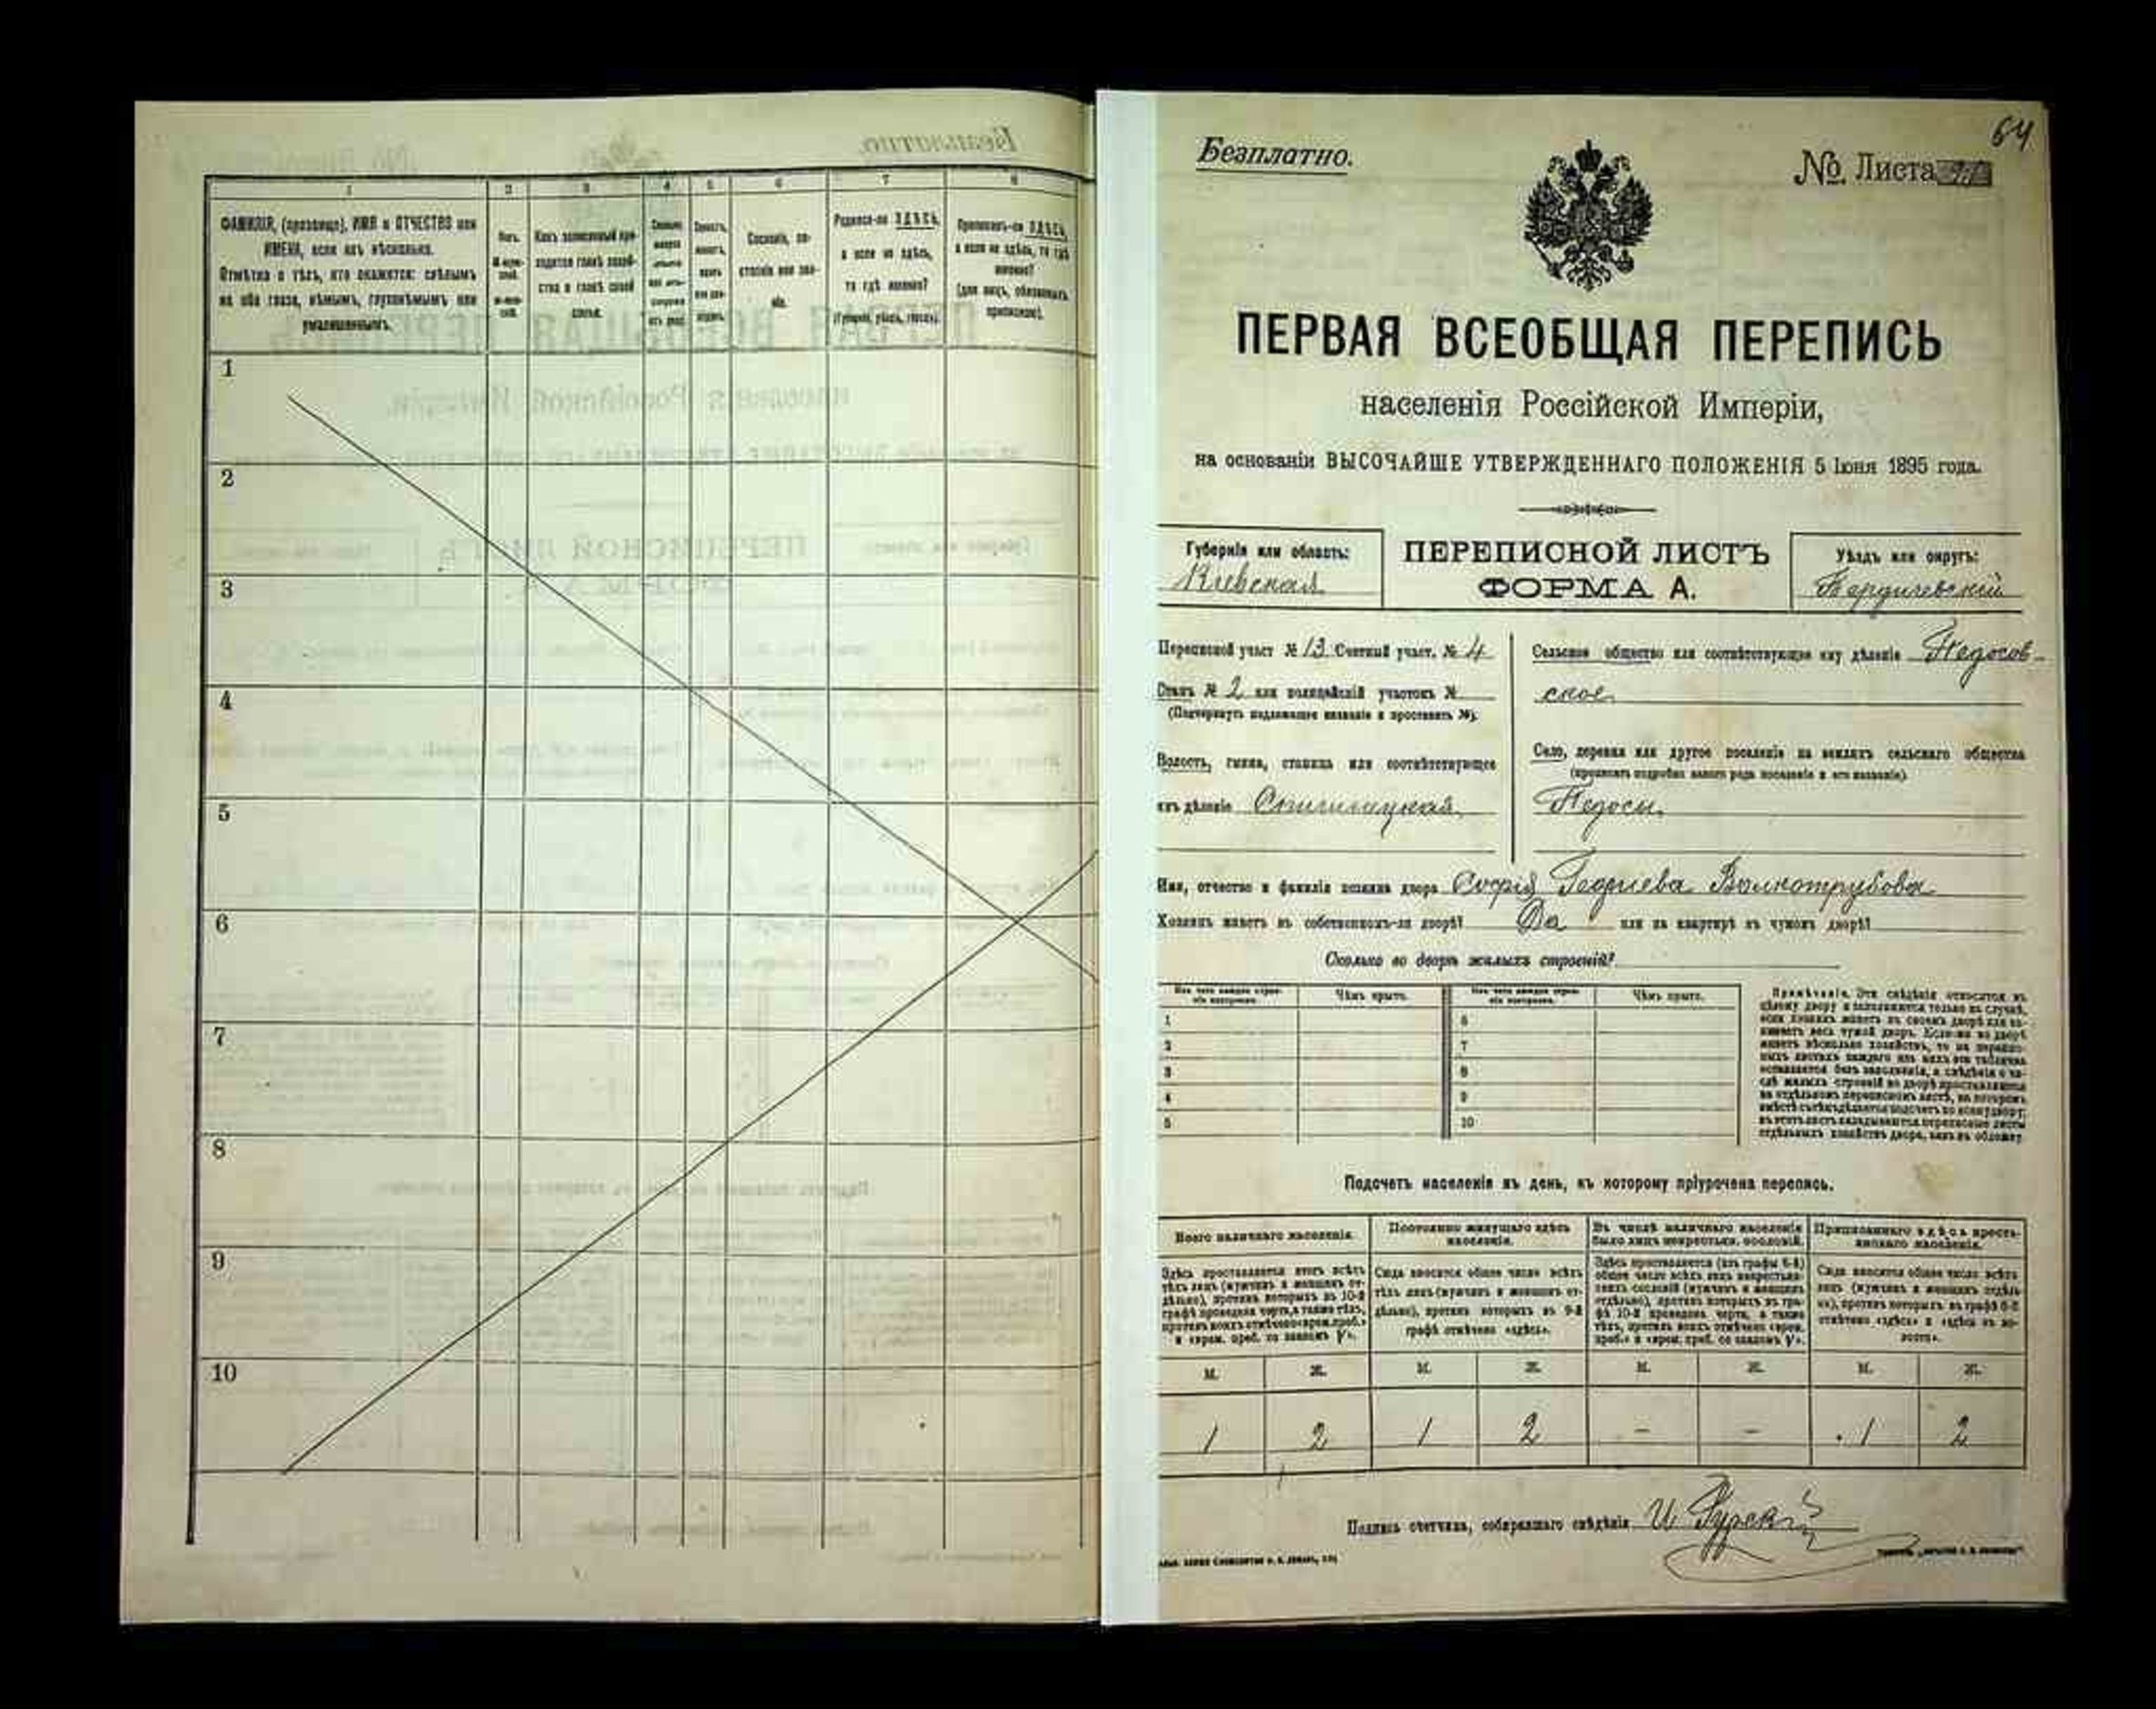 1 2 3 4 5 6 7 8
ФАМИЛІЯ, (прозвище), ИМЯ и ОТЧЕСТВО или
ИМЕНА, если ихъ нѣсколько.
Отмѣтка о тѣхъ, кто окажется: слѣпымъ
на оба глаза, нѣмымъ, глухонѣмымъ или
умалишеннымъ.
Полъ.
Какъ записанный при-
ходится главѣ хозяй-
ства и главѣ своей
семьи.
Сословіе, со-
стояніе или зва-
ніе.
Родился-ли ЗДѢСЬ,
а если не здѣсь,
то гдѣ именно?
(Губернія, уѣздъ, городъ).
Приписанъ-ли ЗДѢСЬ,
а если не здѣсь, то гдѣ
именно?
(для лицъ, обязанныхъ
припискою).
1
2
3
4
5
6
7
8
9
10
64
Безплатно.
№ Листа
ПЕРВАЯ ВСЕОБЩАЯ ПЕРЕПИСЬ
населенія Россійской Имперіи,
на основаніи ВЫСОЧАЙШЕ УТВЕРЖДЕННАГО ПОЛОЖЕНІЯ 5 Іюня 1895 года.
Губернія или область:
Кіевская
ПЕРЕПИСНОЙ ЛИСТЪ
ФОРМА А.
Уѣздъ или округъ:
Бердичевскій
Переписной участ № 13 Счетный участ. № 4
Станъ № 2 или полицейскій участокъ №
(Подчеркнуть подлежащее названіе и проставить №).
Волость, гмина, станица или соотвѣтствующее
имъ дѣленіе
Сельское общество или соотвѣтствующее ему дѣленіе Педосов-
ское
Село, деревня или другое поселеніе на земляхъ сельскаго общества
(прописать подробно какого рода поселеніе и его названіе).
Педосы
Имя, отчество и фамилія хозяина двора Софія
Хозяинъ живетъ въ собственномъ-ли дворѣ? Да или на квартирѣ въ чужомъ дворѣ?
Сколько во дворѣ жилыхъ строеній?
Изъ чего каждое строе-
ніе построено.
Чѣмъ крыто.
Изъ чего каждое строе-
ніе построено.
Чѣмъ крыто.
1 6
2 7
3 8
4 9
5 10
Примѣчаніе. Эти свѣдѣнія относятся къ
цѣлому двору и заполняются только въ случаѣ,
если хозяинъ живетъ въ своемъ дворѣ или за-
нимаетъ весь чужой дворъ. Если-же во дворѣ
живетъ нѣсколько хозяйствъ, то на перепис-
ныхъ листахъ каждаго изъ нихъ эта табличка
оставляется безъ заполненія, а свѣдѣнія о чи-
слѣ жилыхъ строеній во дворѣ проставляются
на отдѣльномъ переписномъ листѣ, на которомъ
вмѣстѣ съ тѣмъ дѣлается подсчетъ по всему двору;
въ этотъ листъ вкладываются переписные листы
отдѣльныхъ хозяйствъ двора, какъ въ обложку.
Подсчетъ населенія въ день, къ которому пріурочена перепись.
Всего наличнаго населенія.
Постоянно живущаго здѣсь
населенія.
Въ числѣ наличнаго населенія
было лицъ некрестьян. сословій.
Приписаннаго здѣсь кресть-
янскаго населенія.
Здѣсь проставляется итогъ всѣхъ
тѣхъ лицъ (мужчинъ и женщинъ от-
дѣльно), противъ которыхъ въ 10-й
графѣ проведена черта, а также тѣхъ,
противъ коихъ отмѣчено «врем. преб.»
Сюда вносится общее число всѣхъ
тѣхъ лицъ (мужчинъ и женщинъ от-
дѣльно), противъ которыхъ въ 9-й
графѣ отмѣчено «здѣсь».
Здѣсь проставляется (изъ графы 6-й)
общее число всѣхъ лицъ некрестьян-
скихъ сословій (мужчинъ и женщинъ
отдѣльно), противъ которыхъ въ гра-
фѣ 10-й проведена черта, а также
тѣхъ, противъ коихъ отмѣчено «врем.
Сюда вносится общее число всѣхъ
лицъ (мужчинъ и женщинъ отдѣль-
но), противъ которыхъ въ графѣ 8-й
отмѣчено «здѣсь» и «здѣсь въ во-
лости».
М. Ж. М. Ж. М. Ж. М. Ж.
1 2 1 2 - - 1 2
Подпись счетчика, собиравшаго свѣдѣнія И